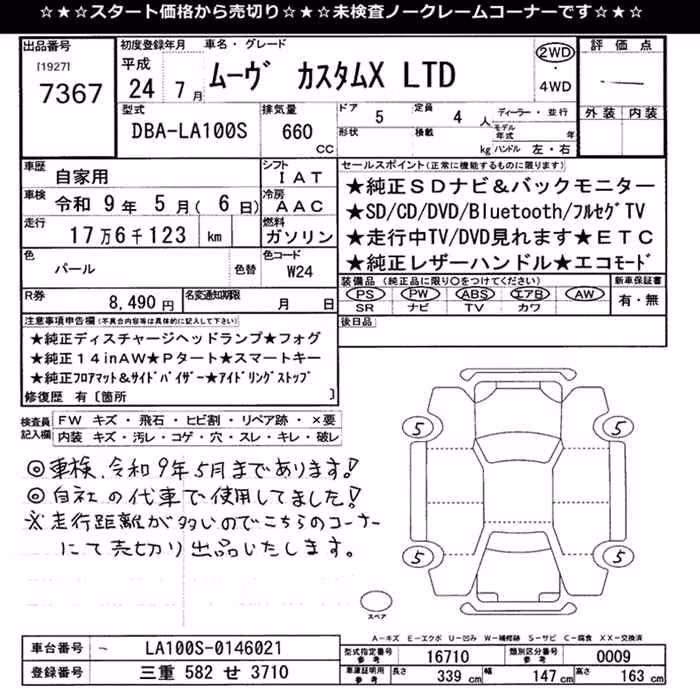 ☆★☆スタート価格から売切り☆★☆未検査ノークレームコーナーです☆★☆
出品番号 初度登録年月 車名・グレード 評価点
[1927] 平成 2WD
7367 24 7月 ムーヴ カスタムX LTD ・
4WD
型式 排気量 ドア 5 定員 4 人 ディーラー・並行 外装 内装
DBA-LA100S 660 CC 形状 積載 kg モデル年式 年
ハンドル 左・右
車歴 自家用 シフト IAT セールスポイント(正常に機能するものに限ります)
車検 令和 9年 5月( 6日) 冷房 AAC ★純正SDナビ&バックモニター
★SD/CD/DVD/Bluetooth/フルセグTV
走行 17万6千123 km 燃料 ガソリン ★走行中TV/DVD見れます★ETC
色 パール 色替 色コード W24 ★純正レザーハンドル★エコモード
装備品(純正品に限り○をつけてください) 新車保証書
R券 8,490円 名変通知期限 月 日 PS PW ABS エアB AW 有・無
SR ナビ TV カワ
注意事項申告欄(不具合内容等は具体的に記入して下さい) 後日品
★純正ディスチャージヘッドランプ★フォグ
★純正14inAW★Pタート★スマートキー
★純正フロアマット&サイドバイザー★アイドリングストップ
修復歴 有〔箇所 〕
検査員記入欄 FW キズ・飛石・ヒビ割・リペア跡・×要
内装 キズ・汚レ・コゲ・穴・スレ・キレ・破レ
◎車検、令和9年5月まであります!
◎自社の代車で使用してました!
※走行距離が多いのでこちらのコーナー
にて売切り出品いたします。
5 5
5 5
スペア
A-キズ E-エクボ U-凹み W-補修跡 S-サビ C-腐食 XX-交換済
車台番号 - LA100S-0146021 型式指定番号 参考 16710 類別区分番号 参考 0009
登録番号 三重 582 せ 3710 車庫証明用 参考 長さ 339 cm 幅 147 cm 高さ 163 cm